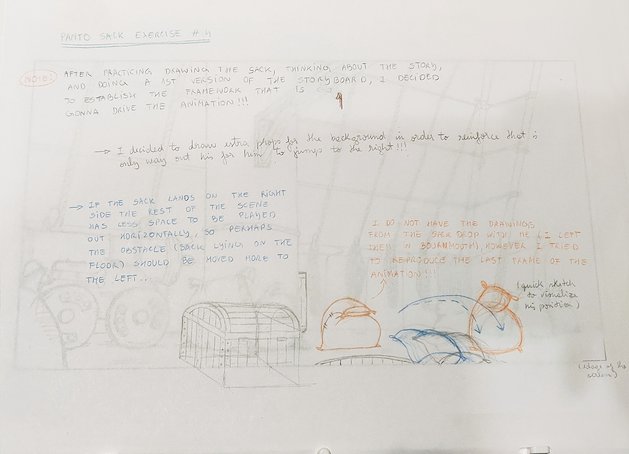 PANTO SACK EXERCISE #.4
NOTE!
AFTER PRACTICING DRAWING THE SACK, THINKING ABOUT THE STORY,
AND DOING A 1ST VERSION OF THE STORYBOARD, I DECIDED
TO ESTABLISH THE FRAMEWORK THAT IS
GONNA DRIVE THE ANIMATION!!!
→ I decided to draw extra props for the background in order to reinforce that is
only way out his for him to jump to the right!!!
→ IF THE SACK LANDS ON THE RIGHT
SIDE THE REST OF THE SCENE
HAS LESS SPACE TO BE PLAYED
OUT HORIZONTALLY, SO PERHAPS
THE OBSTACLE (SACK LYING ON THE
FLOOR) SHOULD BE MOVED MORE TO
THE LEFT...
I DO NOT HAVE THE DRAWINGS
FROM THE SACK DROP WITH ME (I LEFT
THEM IN BOURNMOUTH), HOWEVER I TRIED
TO REPRODUCE THE LAST FRAME OF THE
ANIMATION!!!
(quick sketch
to visualize
his position)
(edge of the